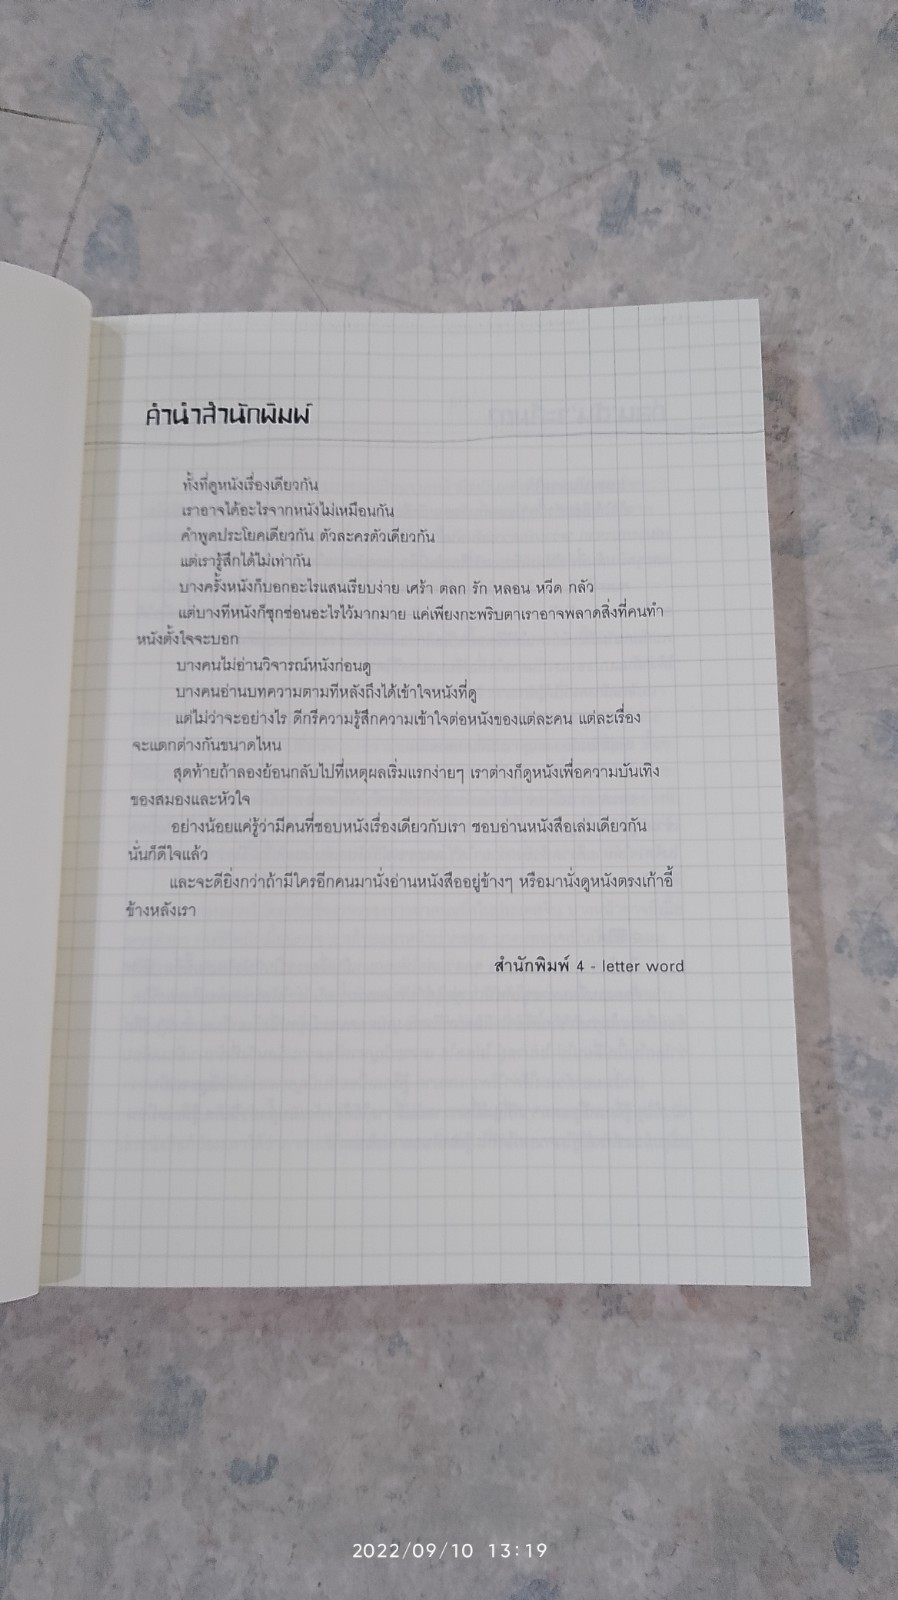 คำนำสำนักพิมพ์
ทั้งที่ดูหนังเรื่องเดียวกัน
เราอาจได้อะไรจากหนังไม่เหมือนกัน
คำพูดประโยคเดียวกัน ตัวละครตัวเดียวกัน
แต่เรารู้สึกได้ไม่เท่ากัน
บางครั้งหนังก็บอกอะไรแสนเรียบง่าย เศร้า ตลก รัก หลอน หวีด กลัว
แต่บางทีหนังก็ซุกซ่อนอะไรไว้มากมาย แค่เพียงกะพริบตาเราอาจพลาดสิ่งที่คนทำ
หนังตั้งใจจะบอก
บางคนไม่อ่านวิจารณ์หนังก่อนดู
บางคนอ่านบทความตามทีหลังถึงได้เข้าใจหนังที่ดู
แต่ไม่ว่าจะอย่างไร ดีกรีความรู้สึกความเข้าใจต่อหนังของแต่ละคน แต่ละเรื่อง
จะแตกต่างกันขนาดไหน
สุดท้ายถ้าลองย้อนกลับไปที่เหตุผลเริ่มแรกง่ายๆ เราต่างก็ดูหนังเพื่อความบันเทิง
ของสมองและหัวใจ
อย่างน้อยแค่รู้ว่ามีคนที่ชอบหนังเรื่องเดียวกับเรา ชอบอ่านหนังสือเล่มเดียวกัน
นั่นก็ดีใจแล้ว
และจะดียิ่งกว่าถ้ามีใครอีกคนมานั่งอ่านหนังสืออยู่ข้างๆ หรือมานั่งดูหนังตรงเก้าอี้
ข้างหลังเรา
สำนักพิมพ์ 4 - letter word
2022/09/10 13:19